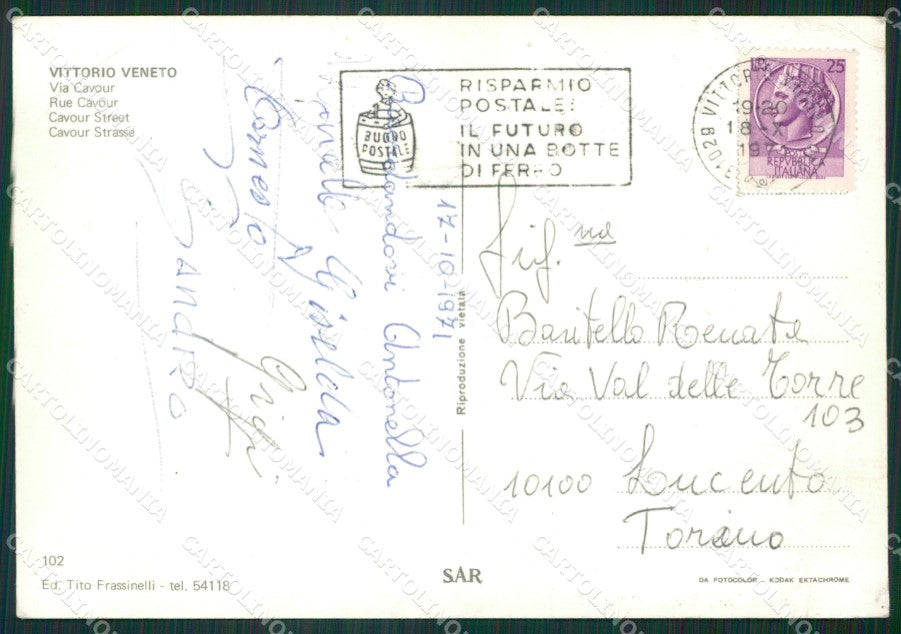 VITTORIO VENETO
Via Cavour
Rue Cavour
Cavour Street
Cavour Strasse
BUONO
POSTALE
RISPARMIO
POSTALE:
IL FUTURO
IN UNA BOTTE
DI FERRO
19-20
18-X
25
REPVBBLICA
ITALIANA
17-10-1971
Antonella
Gisella
Gigi
SANDRO
Riproduzione vietata
Sig.na
Baritello Renata
Via Val delle Torre
103
10100 Lucento
Torino
102
Ed. Tito Frassinelli - tel. 54118
SAR
DA FOTOCOLOR - KODAK EKTACHROME
CARTOLINOMANIA